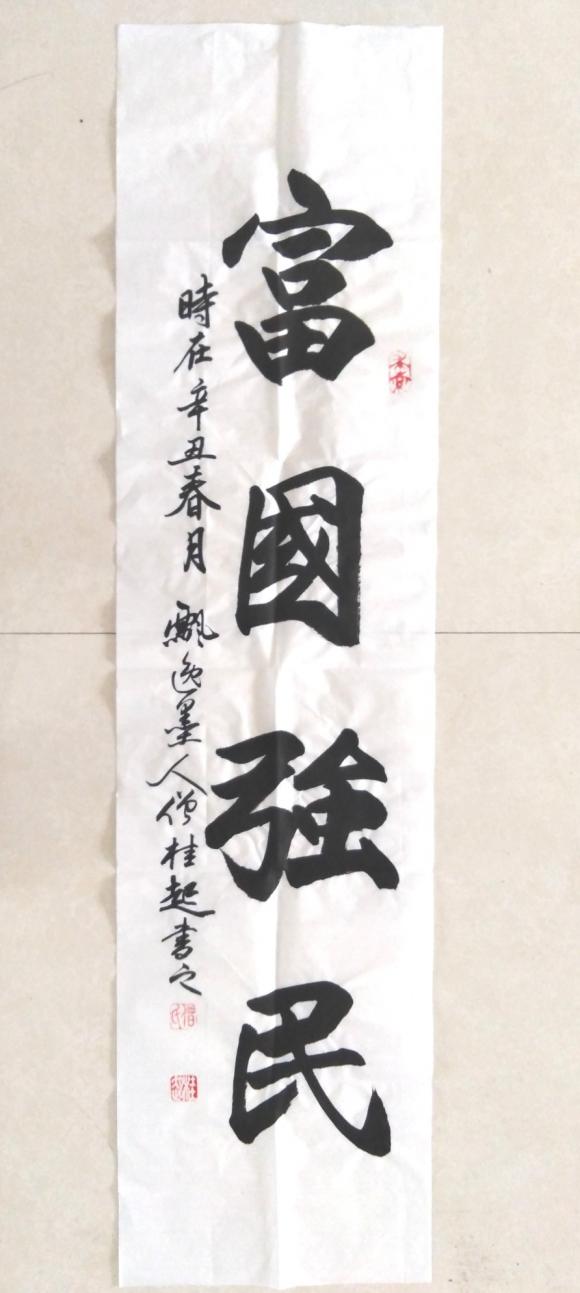 富國強民
時在辛丑春月 飄逸墨人僧桂起書之